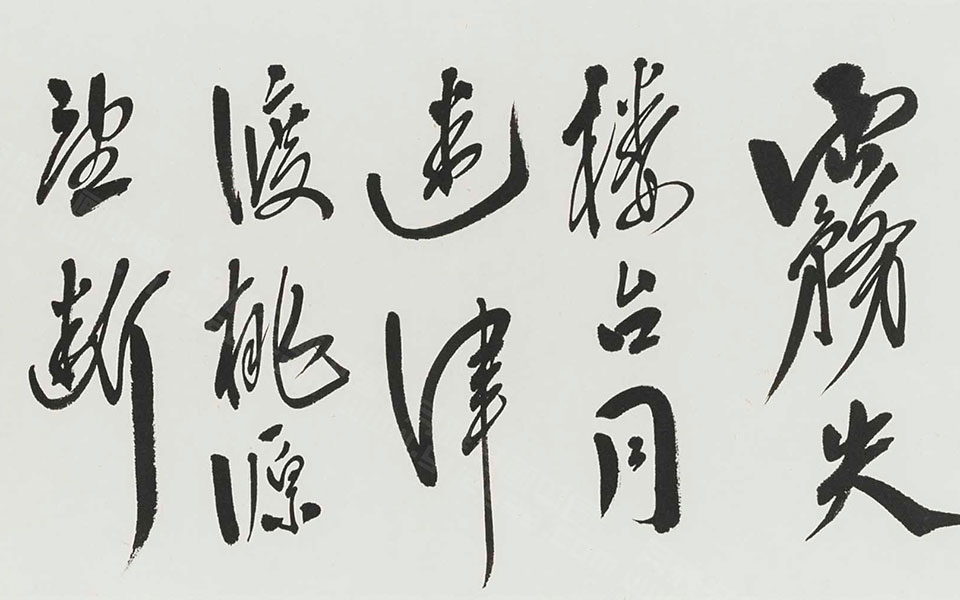 霧失
樓台月
迷津
渡桃源
望断